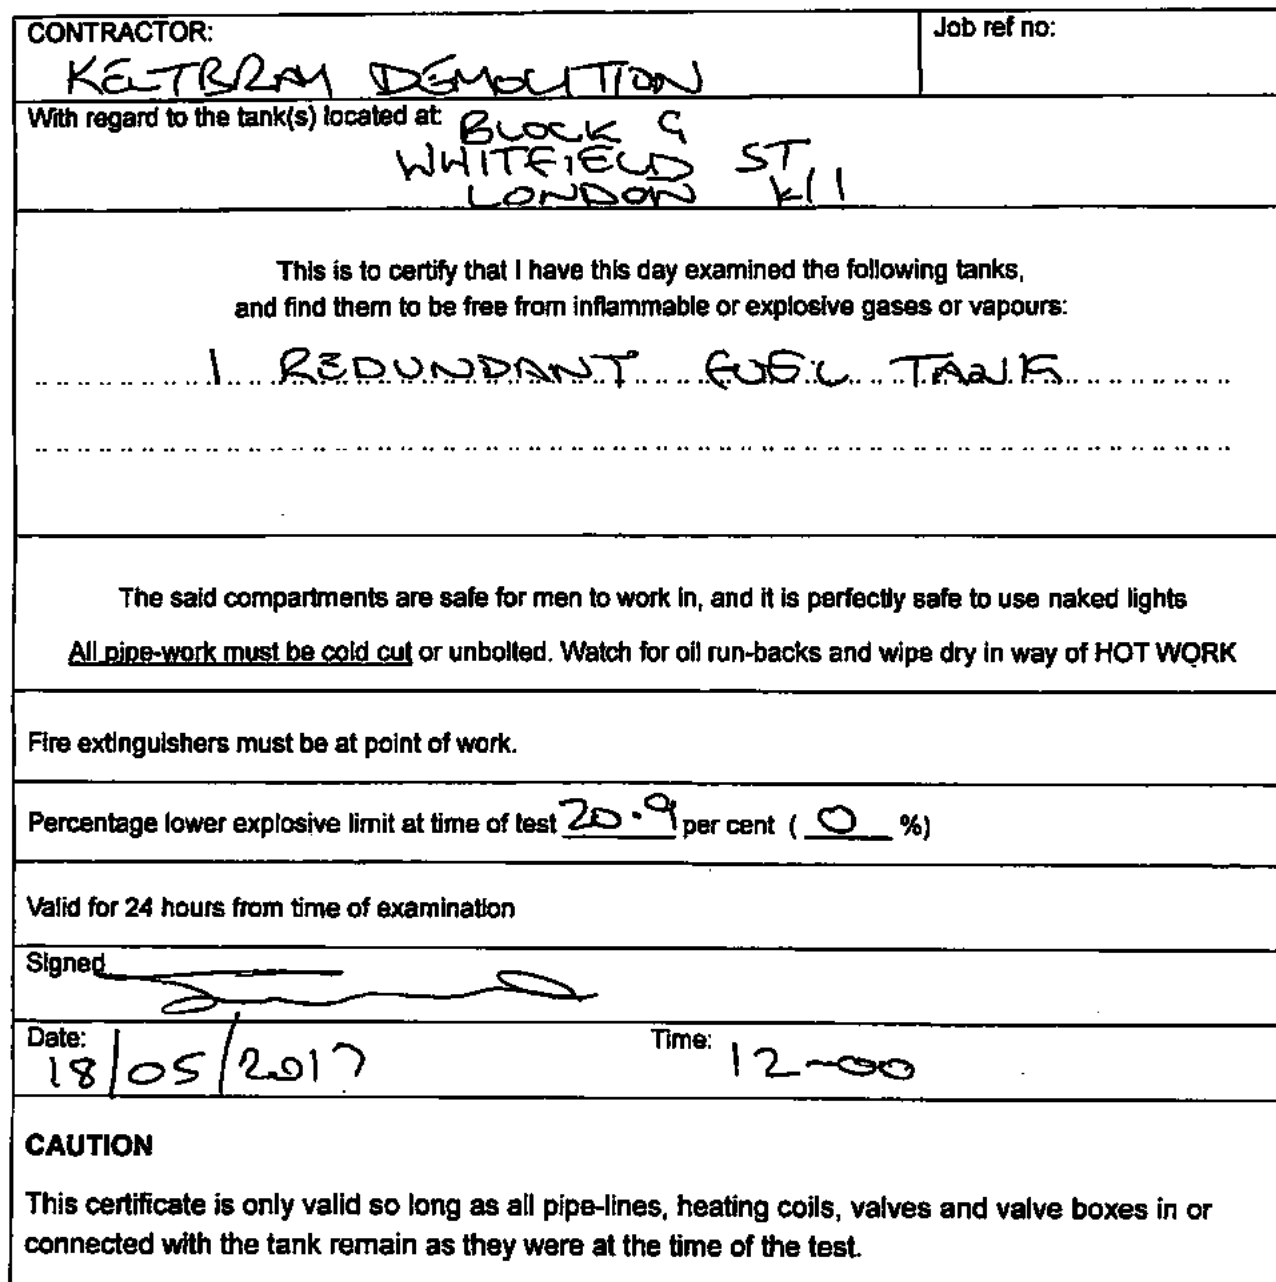 CONTRACTOR:
Job ref no:
KELTBRAY DEMOLITION
With regard to the tank(s) located at:
BLOCK G
WHITFIELD ST
LONDON
This is to certify that I have this day examined the following tanks,
and find them to be free from inflammable or explosive gases or vapours:
1 REDUNDANT FUEL TANK
The said compartments are safe for men to work in, and it is perfectly safe to use naked lights
All pipe-work must be cold cut or unbolted. Watch for oil run-backs and wipe dry in way of HOT WORK
Fire extinguishers must be at point of work.
Percentage lower explosive limit at time of test 20.9 per cent ( 0 %)
Valid for 24 hours from time of examination
Signed
Date: 18/05/2017 Time: 12-00
CAUTION
This certificate is only valid so long as all pipe-lines, heating coils, valves and valve boxes in or
connected with the tank remain as they were at the time of the test.